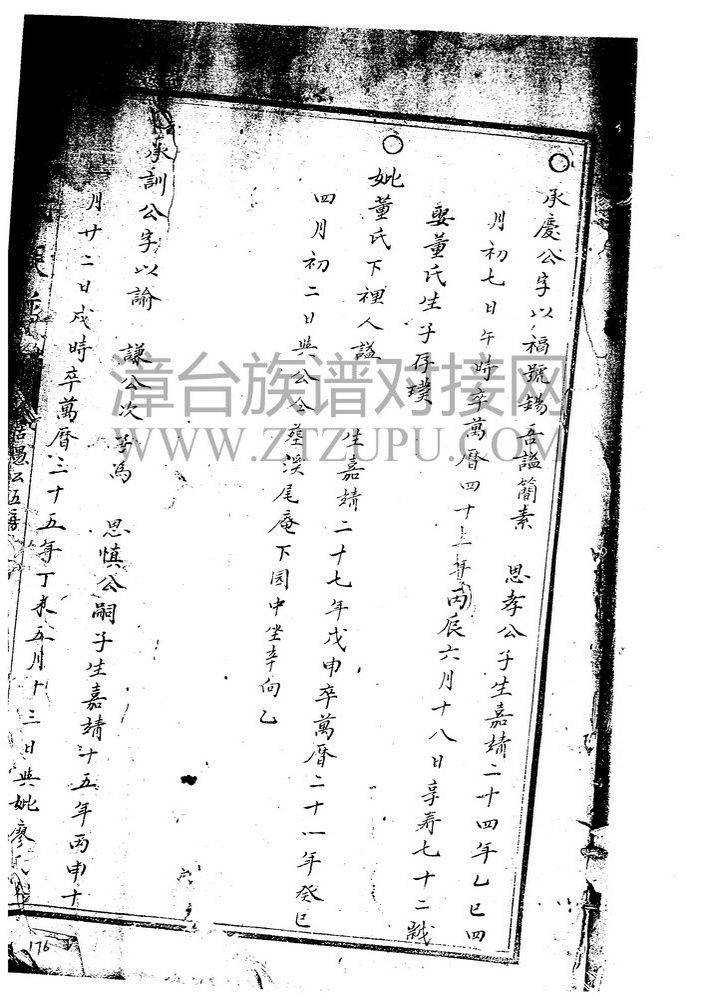 承慶公字以福號錫吾謚簡素 思孝公子生嘉靖二十四年乙巳四
月初七日午時卒萬曆四十年丙辰六月十八日享寿七十二
娶董氏生子存璞
妣董氏下裡人謚 生嘉靖二十七年戊申卒萬曆二十一年癸巳
四月初二日與公仝塟溪尾庵下园中坐辛向乙
承訓公字以諭 謙公次 為 思慎公嗣子生嘉靖十五年丙申十
月廿二日戍時卒萬曆三十五年丁未五月十三日與妣廖氏
漳台族谱对接网
WWW.ZTZUPU.COM
176